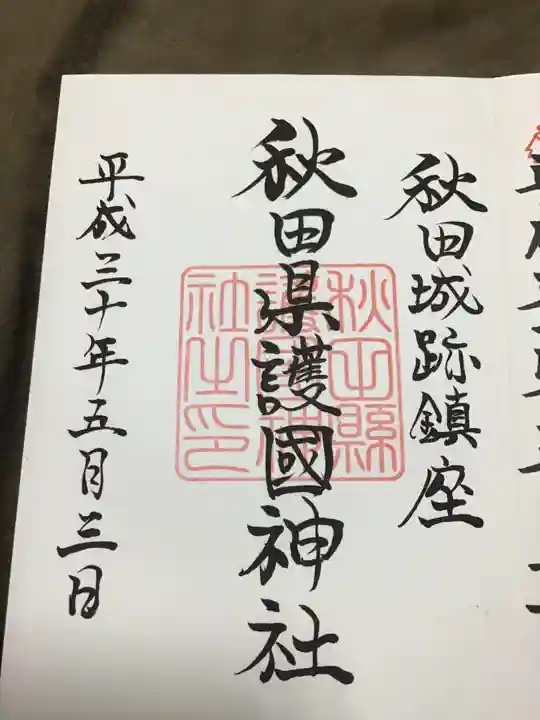 秋田城跡鎮座
秋田県護國神社
秋田縣護國神社之印
平成三十年五月三日